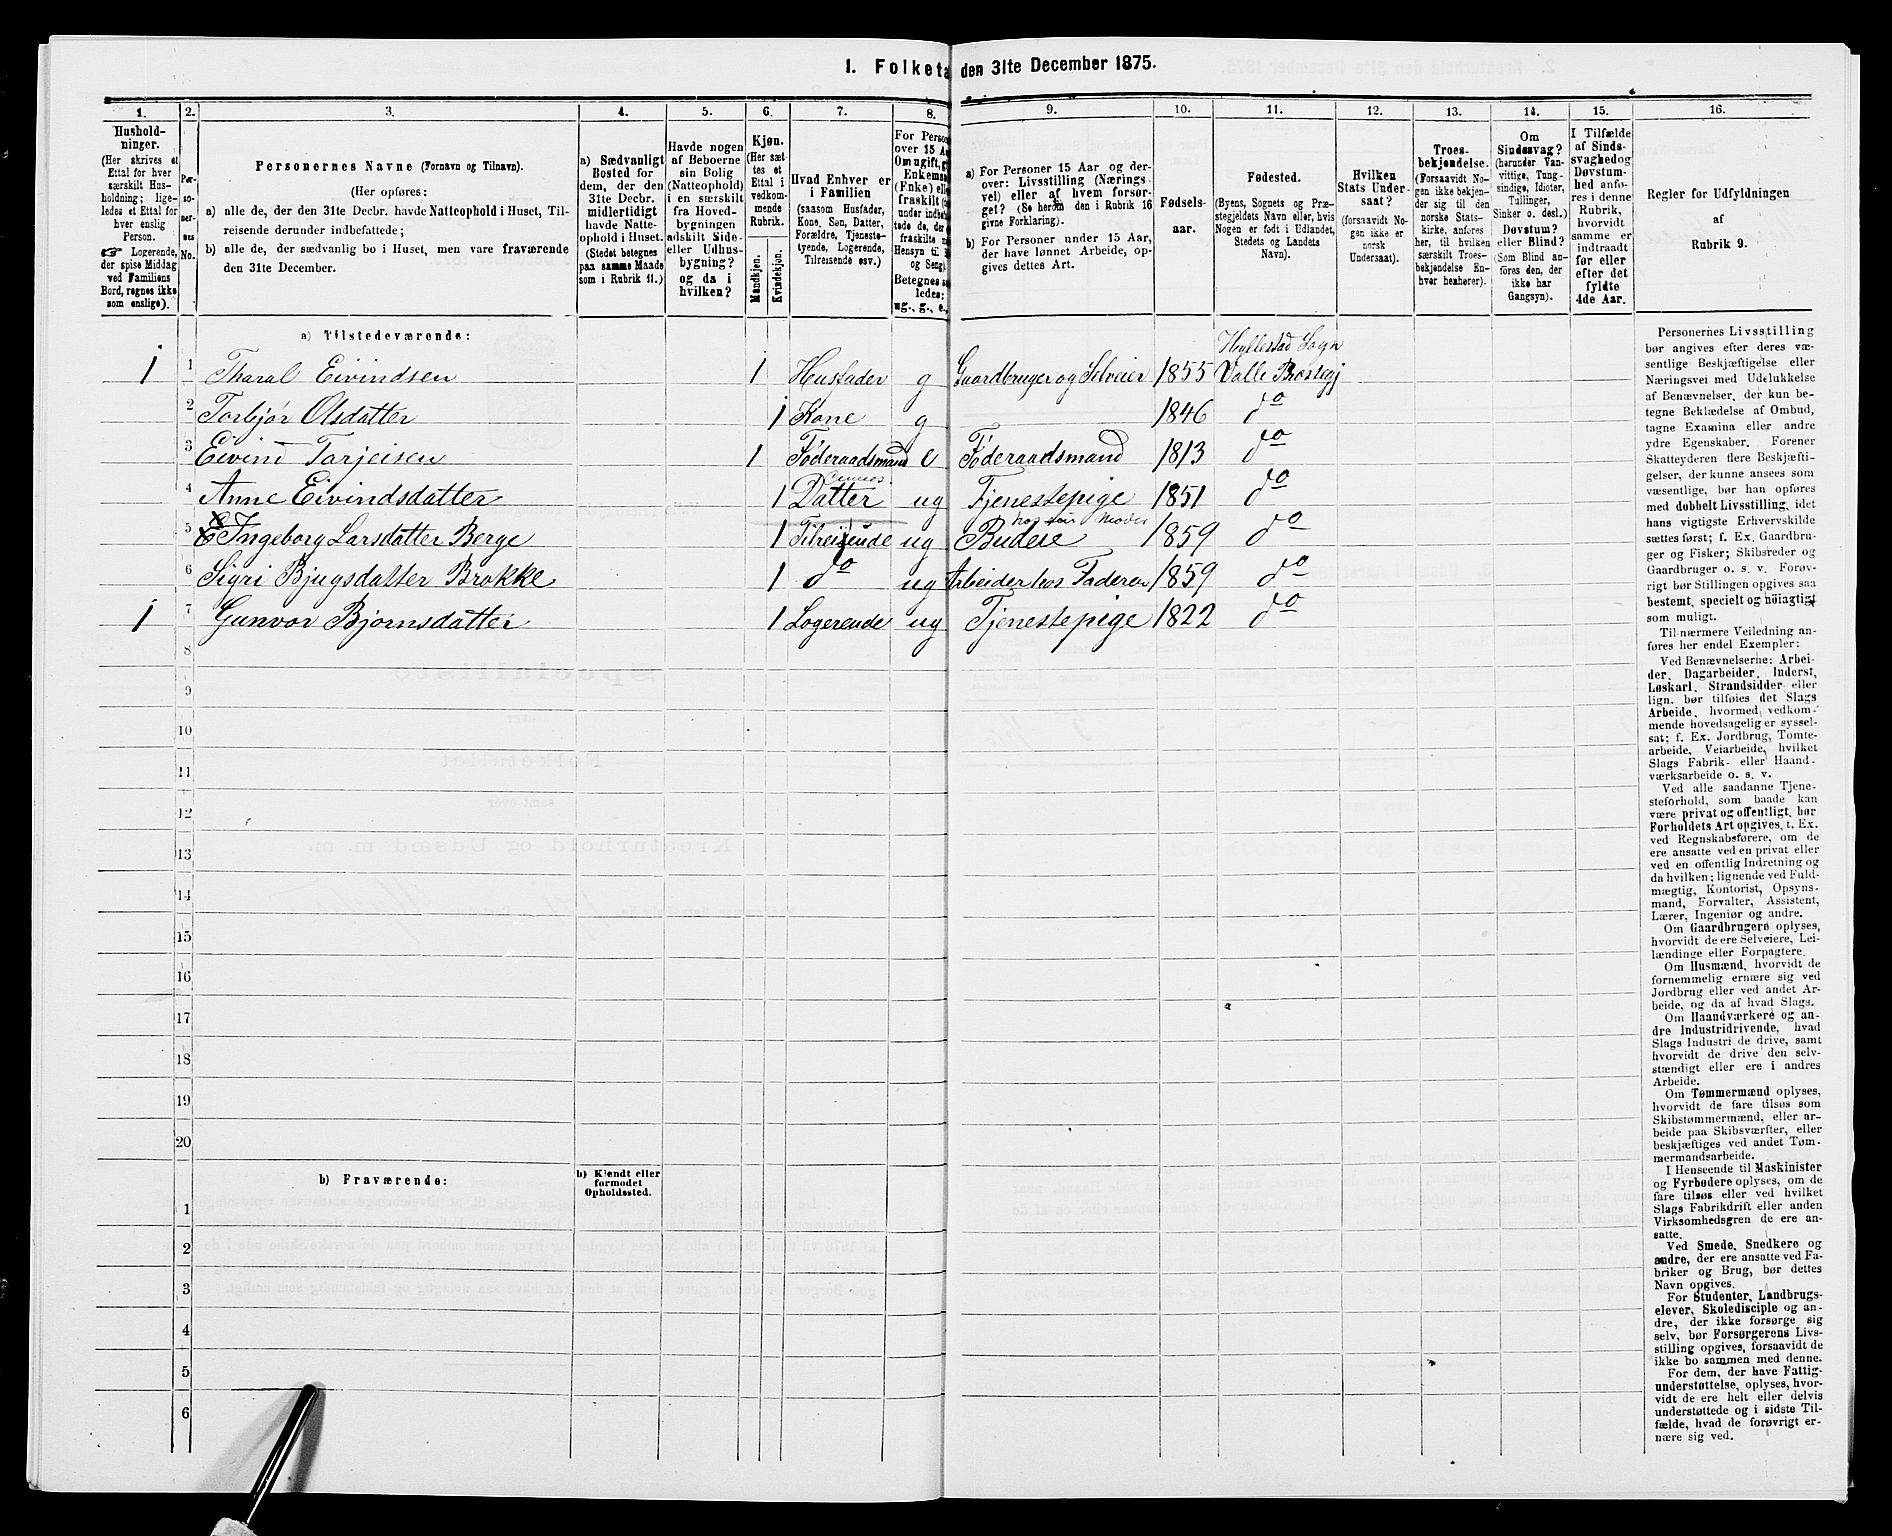 1. Folketa den 31te December 1875.
1. 2. 3. 4. 5. 6. 7. 8. 9. 10. 11. 12. 13. 14. 15. 16.
Hushold-
ninger.
(Her skrives et
Ettal for hver
særskilt Hus-
holdning; lige-
ledes et Ettal for
hver enslig
Person.
☞ Logerende,
der spise Middag
ved Familiens
Bord, regnes ikke
som enslige).
Per-
so-
ner-
nes
No.
Personernes Navne (Fornavn og Tilnavn).
(Her opføres:
a) alle de, der den 31te Decbr. havde Natteophold i Huset, Til-
reisende derunder indbefattede;
b) alle de, der sædvanlig bo i Huset, men vare fraværende
den 31te December.
a) Sædvanligt
Bosted for
dem, der den
31te Decbr.
midlertidigt
havde Natte-
ophold i Huset.
(Stedet betegnes
paa samme Maade
som i Rubrik 11.)
Havde nogen
af Beboerne
sin Bolig
(Natteophold)
i en særskilt
fra Hoved-
bygningen
adskilt Side-
eller Udhus-
bygning?
og da i
hvilken?
Kjøn.
(Her sæt-
tes et
Ettal i
vedkom-
mende
Rubrik.
Mandkjøn.
Kvindekjøn.
Hvad Enhver er
i Familien
(saasom Husfader,
Kone, Søn, Datter,
Forældre, Tjeneste-
tyende, Logerende,
Tilreisende osv.)
For Perso
over 15 A
Om ugift, g
Enkema
(Enke) elle
fraskilt (
under indbe
tede de, de
fraskilte
Hensyn til
og Seng).
Betegnes s
ledes:
ug., g., e.,
a) For Personer 15 Aar og der-
over: Livsstilling (Nærings-
vei) eller af hvem forsør-
get? (Se herom den i Rubrik 16
givne Forklaring).
b) For Personer under 15 Aar,
der have lønnet Arbeide, op-
gives dettes Art.
Fødsels-
aar.
Fødested.
(Byens, Sognets og Præ-
stegjeldets Navn eller, hvis
Nogen er født i Udlandet,
Stedets og Landets
Navn).
Hvilken
Stats Under-
saat?
(forsaavidt No-
gen ikke er
norsk
Undersaat).
Troes-
bekjendelse.
(Forsaavidt No-
gen ikke bekjen-
der sig til den
norske Stats-
kirke, anføres
her, til hvilken
særskilt Troes-
bekjendelse En-
hver henhører).
Om
Sindssvag?
(herunder Van-
vittige, Tung-
sindige, Idioter,
Tullinger,
Sinker o. desl.)
Døvstum?
eller Blind?
(Som Blind an-
føres den, der
ikke har
Gangsyn).
I Tilfælde
af Sinds-
svaghed og
Døvstum-
hed anfø-
res i denne
Rubrik,
hvorvidt
samme er
indtraadt
før eller
efter det
fyldte
4de Aar.
Regler for Udfyldningen
af
Rubrik 9.
a) Tilstedeværende:
Hyllestad Sogn
1 1 Tharal Eivindsen 1 Husfader g Gaardbruger og Selveier 1855 Valle Præstegj
2 Torbjør Olsdatter 1 Kone g 1846 do
3 Eivind Tarjeisen 1 Føderaadsmand e Føderaadsmand 1813 do
4 Anne Eivindsdatter 1 Datter ug Tjenestepige 1851 do
5 Ingeborg Larsdatter Berge 1 Tilreisende ug Budeie hos sin Moder 1859 do
6 Sigri Bjugsdatter Brokke 1 do ug Arbeider hos Faderen 1859 do
1 7 Gunvor Bjørnsdatter 1 Logerende ug Tjenestepige 1822 do
8
9
10
11
12
13
14
15
16
17
18
19
20
b) Fraværende:
b) Kjendt eller
formodet
Opholdssted.
1
2
3
4
5
6
Personernes Livsstilling
bør angives efter deres væ-
sentlige Beskjæftigelse eller
Næringsvei med Udelukkelse
af Benævnelser, der kun be-
tegne Beklædelse af Ombud,
tagne Examina eller andre
ydre Egenskaber. Forener
Skatteyderen flere Beskjæfti-
gelser, der kunne ansees som
væsentlige, bør han opføres
med dobbelt Livsstilling, idet
hans vigtigste Erhvervskilde
sættes først; f. Ex. Gaardbru-
ger og Fisker; Skibsreder og
Gaardbruger o. s. v. Forøv-
rigt bør Stillingen opgives saa
bestemt, specielt og nöiagtigt
som muligt.
Til nærmere Veiledning an-
føres her endel Exempler:
Ved Benævnelserne: Arbei-
der, Dagarbeider, Inderst,
Løskarl, Strandsidder eller
lign. bør tilføies det Slags
Arbeide, hvormed vedkom-
mende hovedsagelig er syssel-
sat; f. Ex. Jordbrug, Tomte-
arbeide, Veiarbeide, hvilket
Slags Fabrik- eller Haand-
værksarbeide o. s. v.
Ved alle saadanne Tjene-
steforhold, som baade kan
være privat og offentligt, bør
Forholdets Art opgives, t. Ex.
ved Regnskabsførere, om de
ere ansatte ved en privat eller
ved en offentlig Indretning og
da hvilken; lignende ved Fuld-
mægtig, Kontorist, Opsyns-
mand, Forvalter, Assistent,
Lærer, Ingeniør og andre.
Om Gaardbrugere oplyses,
hvorvidt de ere Selveiere, Lei-
lændinge eller Forpagtere.
Om Husmænd, hvorvidt de
fornemmelig ernære sig ved
Jordbrug eller ved andet Ar-
beide, og da af hvad Slags.
Om Haandværkere og an-
dre Industridrivende, hvad
Slags Industri de drive, samt
hvorvidt de drive den selv-
stændigt eller ere i andres
Arbeide.
Om Tømmermænd oplyses,
hvorvidt de fare tilsøs som
Skibstømmermænd, eller ar-
beide paa Skibsværfter, eller
beskjæftiges ved andet Tøm-
mermandsarbeide.
I Henseende til Maskinister
og Fyrbødere oplyses, om de
fare tilsøs eller ved hvilket
Slags Fabrikdrift eller anden
Virksomhedsgren de ere an-
satte.
Ved Smede, Snedkere og
andre, der ere ansatte ved Fa-
briker og Brug, bør dettes
Navn opgives.
For Studenter, Landbrugs-
elever, Skoledisciple og an-
dre, der ikke forsørge sig
selv, bør Forsørgerens Livs-
stilling opgives, forsaavidt de
ikke bo sammen med denne.
For dem, der have Fattig-
understøttelse, oplyses, hvor-
vidt de ere helt eller delvis
understøttede og i sidste Til-
fælde, hvad de forøvrigt er-
nære sig ved.